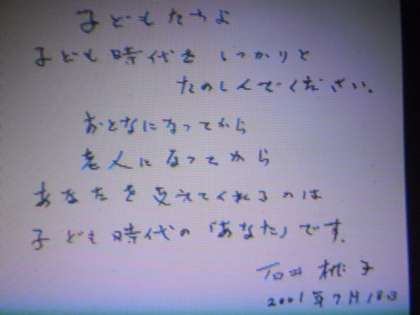 子どもたちよ
子ども時代を しっかりと
たのしんでください。
おとなになってから
老人になってから
あなたを支えてくれるのは
子ども時代の「あなた」です。
石井 桃子
2001年7月18日